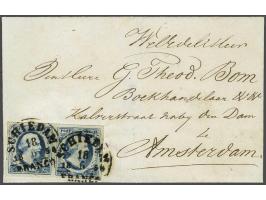 WelEdelHeer
den Heere G. Theod. Bom
Boekhandelaar
Kalverstraat naby den Dam
te
Amsterdam.
SCHIEDAM
18
FRANCO
SCHIEDAM
18
FRANCO